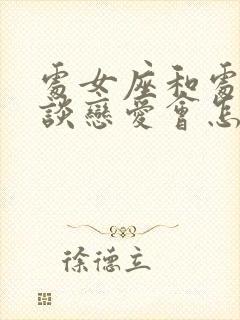 處女座和處
談戀愛會怎
徐德立